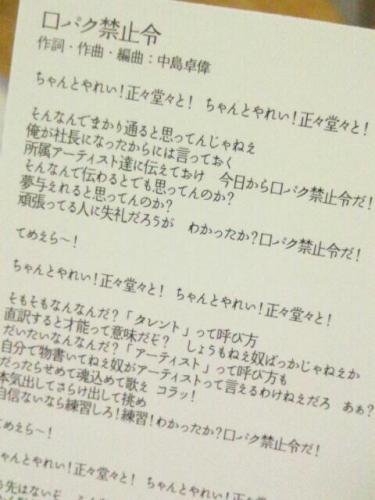 口パク禁止令
作詞・作曲・編曲：中島卓偉
ちゃんとやれい！正々堂々と！ ちゃんとやれい！正々堂々と！
そんなんでまかり通ると思ってんじゃねえ
俺が社長になったからには言っておく
所属アーティスト達に伝えておけ 今日から口パク禁止令だ！
そんなんで伝わるとでも思ってんのか？
夢与えれると思ってんのか？
頑張ってる人に失礼だろうが わかったか？口パク禁止令だ！
てめえら～！
ちゃんとやれい！正々堂々と！ ちゃんとやれい！正々堂々と！
そもそもなんなんだ？「タレント」って呼び方
直訳すると才能って意味だぞ？ しょうもねえ奴ばっかじゃねえか
だいたいなんなんだ？「アーティスト」って呼び方も
自分で物書いてねえ奴がアーティストって言えるわけねえだろ あぁ？
だったらせめて魂込めて歌え コラッ！
本気出してさらけ出して挑め
自信ないなら練習しろ！練習！わかったか？口パク禁止令だ！
てめえら～！
ちゃんとやれい！正々堂々と！ ちゃんとやれい！正々堂々と！